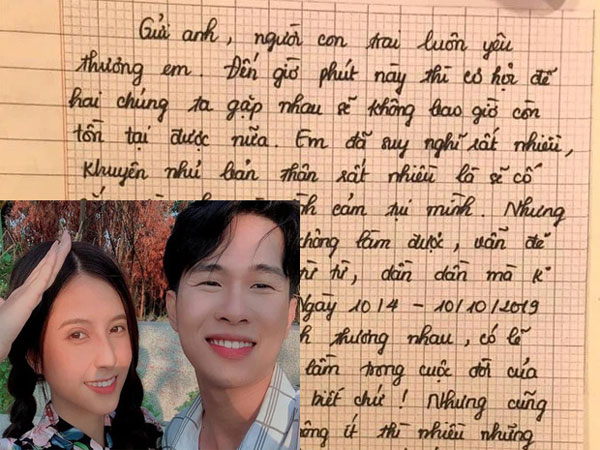 Gửi anh, người con trai luôn yêu
thương em. Đến giờ phút này thì cơ hội để
hai chúng ta gặp nhau sẽ không bao giờ còn
tồn tại được nữa. Em đã suy nghĩ rất nhiều,
Khuyên nhủ bản thân rất nhiều là sẽ cố
cảm tụi mình. Nhưng
không làm được, vấn đề
từ từ, dần dần mà k
Ngày 10/4 - 10/10/2019
thương nhau, có lẽ
lầm trong cuộc đời của
biết chứ! Nhưng cũng
không ít thì nhiều những